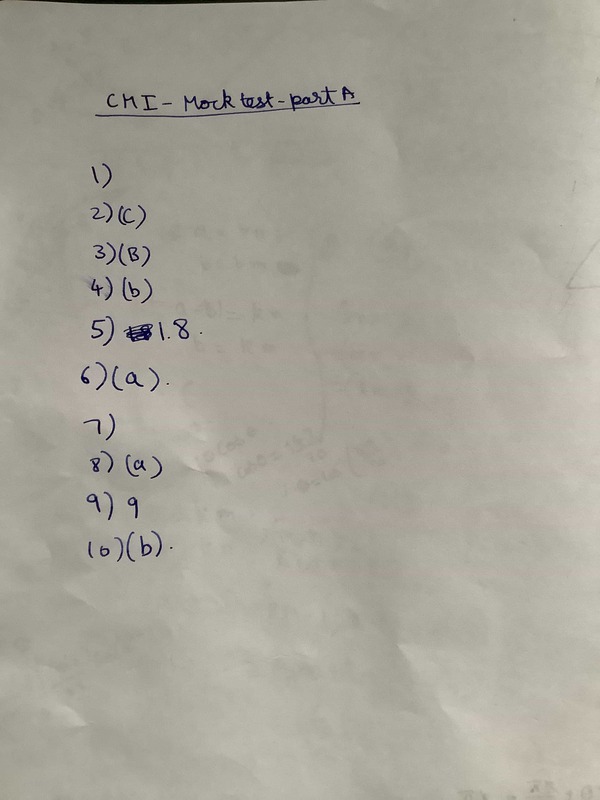 CMI - Mock test - part A
1)
2) (C)
3) (B)
4) (b)
5) 1.8.
6) (a).
7)
8) (a)
9) 9
10) (b).